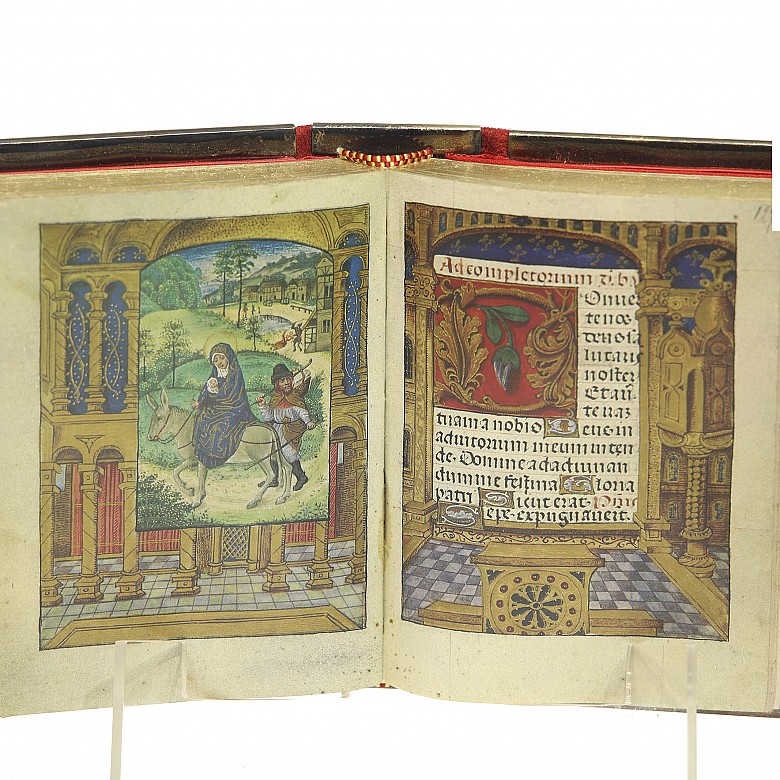 Ad completorium
Onuer
te nos
deus sa
lutaris
noster
Et auer
te iram
tuam a nobis Deus in
adiutorium meum inten
de. Domine ad adiuuan
dum me festina Gloria
patri Sicut erat.
Sepe expugnauerūt.